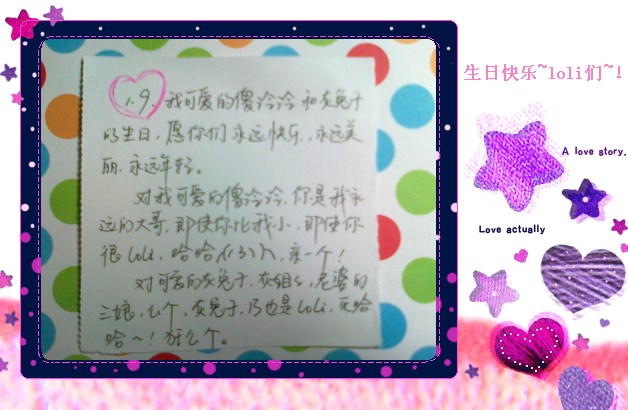 生日快乐~loli们~!
1.9.我可爱的傻冷冷和灰兔子
的生日,愿你们永远快乐,永远美
丽.永远年轻。
对我可爱的傻冷冷.你是我永
远的大哥.即使你比我小.即使你
很loli.哈哈.亲一个!
对可爱的灰兔子.灰姐姐.老婆的
三娘.么个.灰兔子.乃也是loli.哈
哈~!么个。
A love story.
Love actually